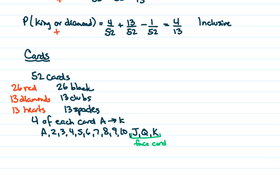 P(King or diamond) = 4/52 + 13/52 - 1/52 = 4/13 Inclusive
+
Cards
52 cards
26 red 26 black
13 diamonds 13 clubs
13 hearts 13 spades
4 of each card A → K
A, 2, 3, 4, 5, 6, 7, 8, 9, 10, J, Q, K
face card